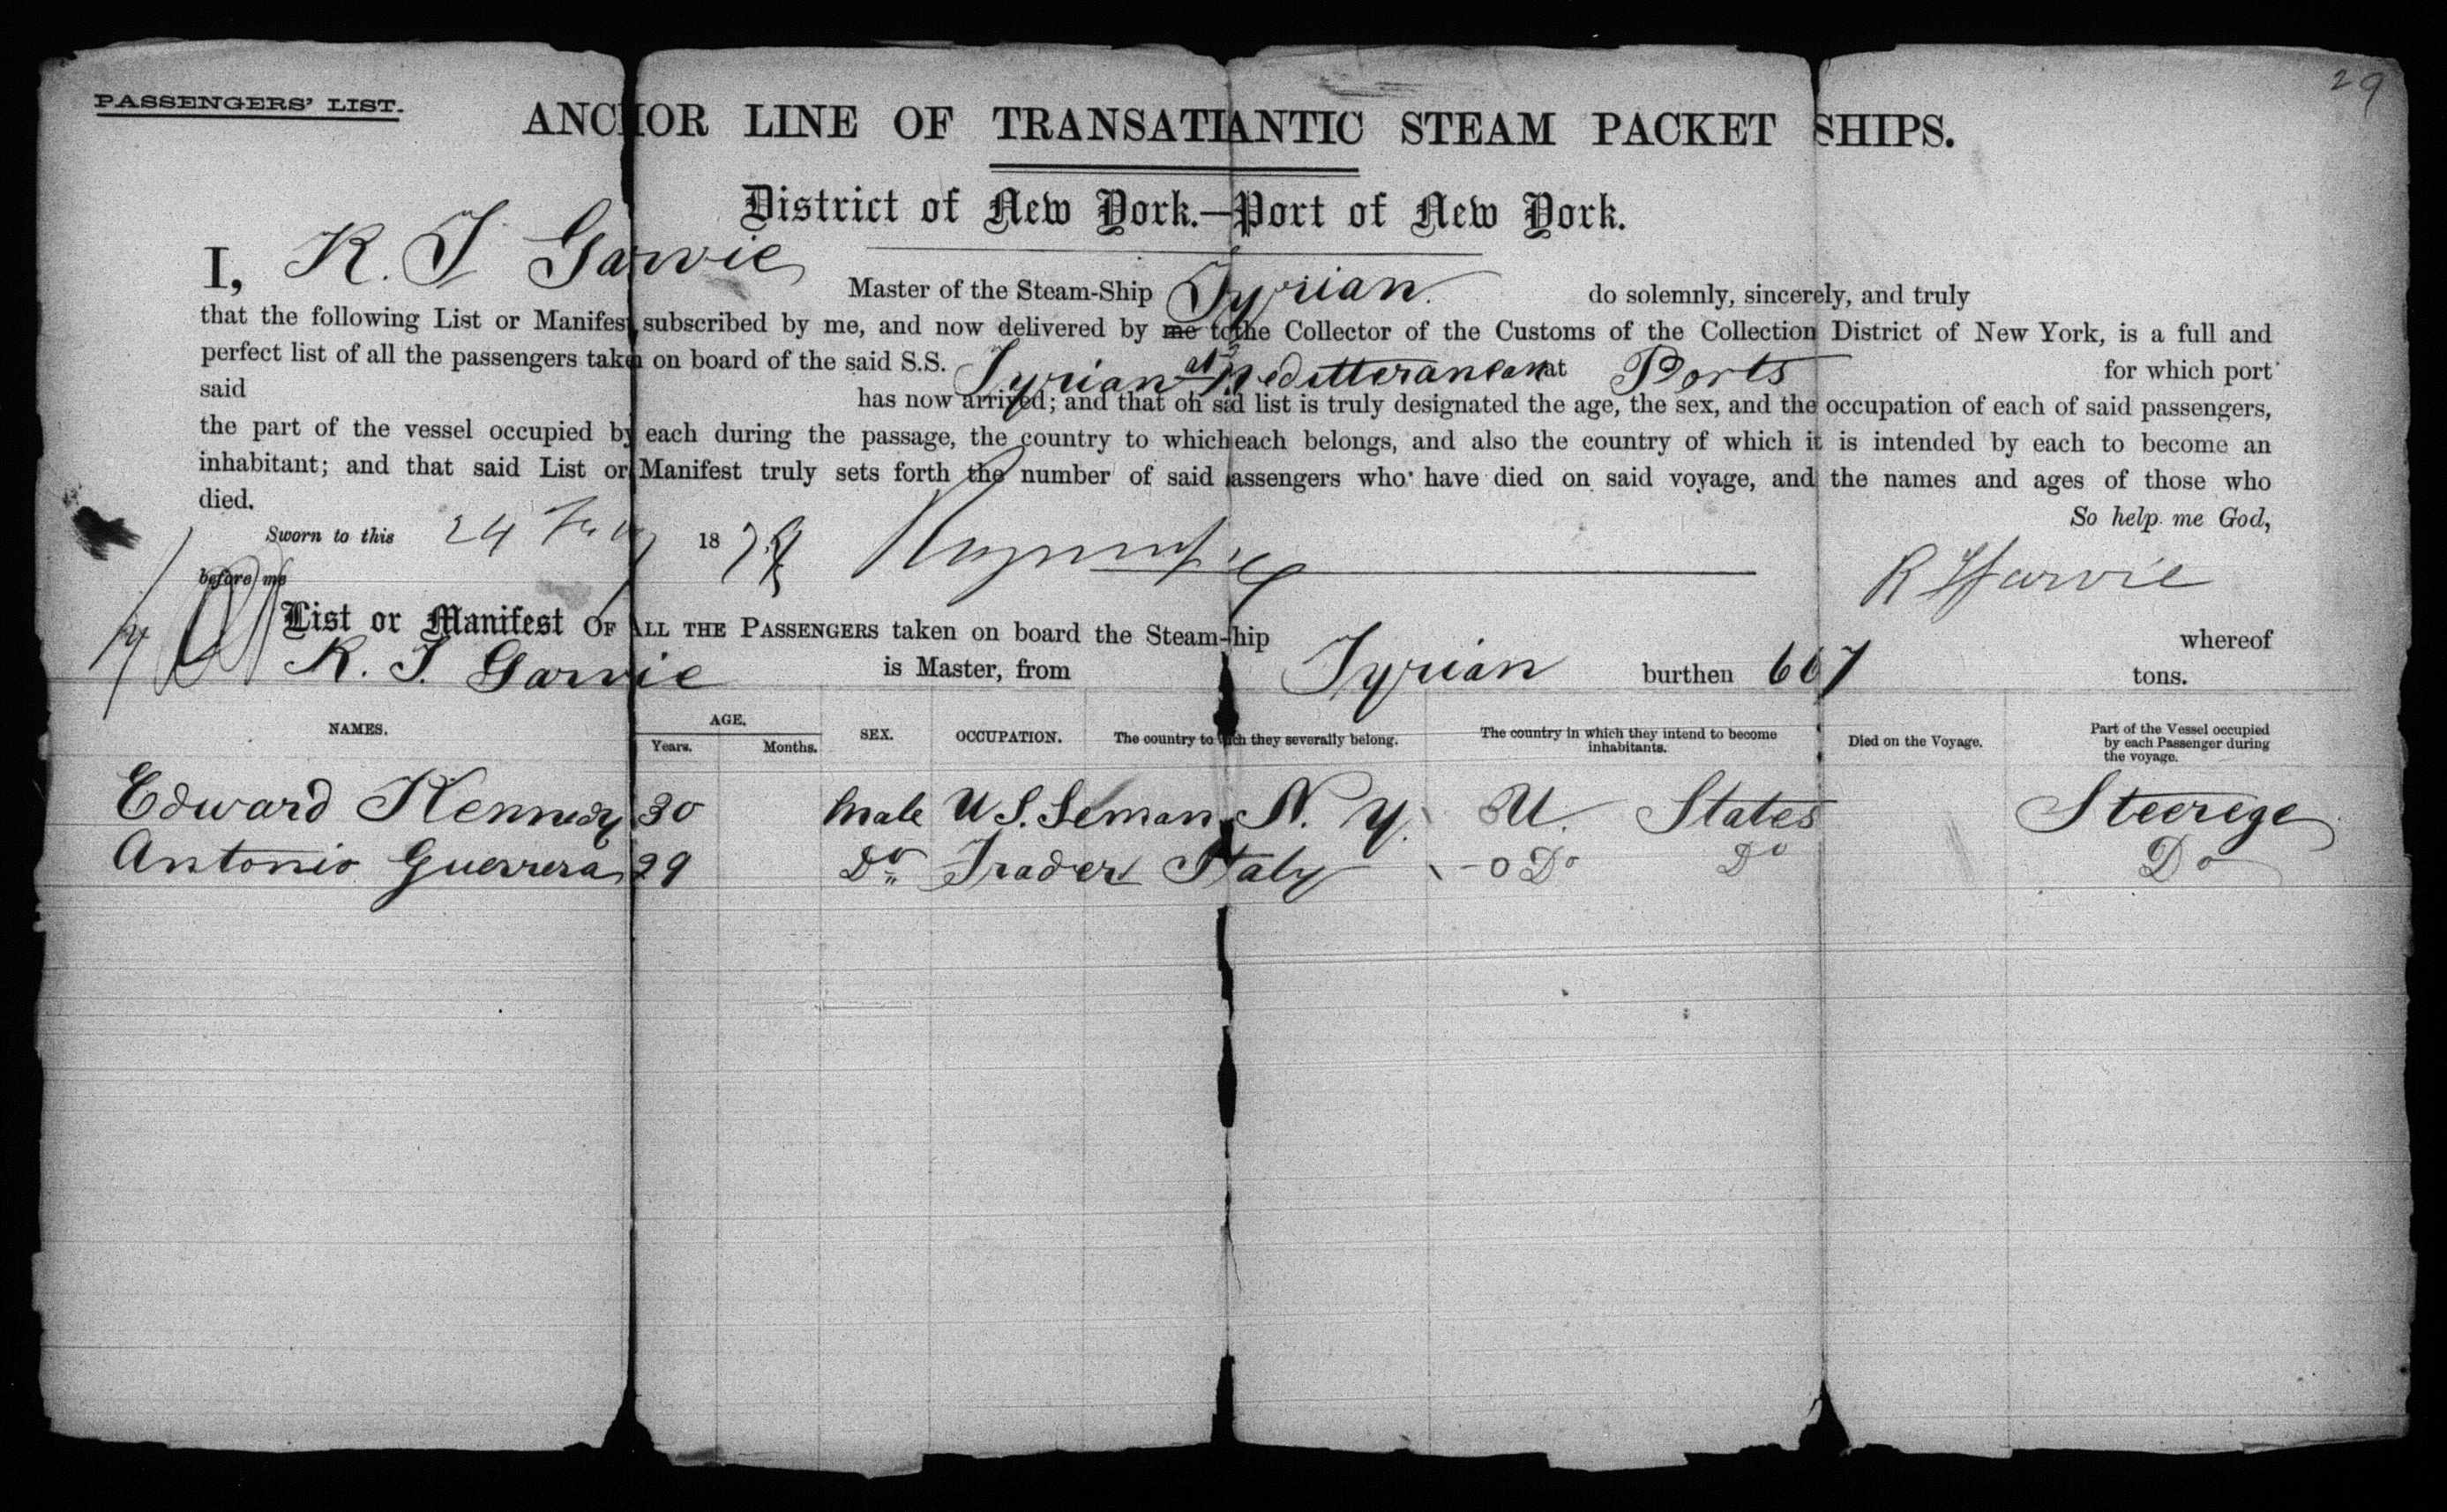 29
PASSENGERS' LIST.
ANCHOR LINE OF TRANSATLANTIC STEAM PACKET SHIPS.
District of New York.—Port of New York.
I, R. J Garvie Master of the Steam-Ship Tyrian. do solemnly, sincerely, and truly
that the following List or Manifest subscribed by me, and now delivered by me to the Collector of the Customs of the Collection District of New York, is a full and
perfect list of all the passengers taken on board of the said S.S. Tyrian at Meditterranean at Ports for which port
said has now arrived; and that on said list is truly designated the age, the sex, and the occupation of each of said passengers,
the part of the vessel occupied by each during the passage, the country to which each belongs, and also the country of which it is intended by each to become an
inhabitant; and that said List or Manifest truly sets forth the number of said passengers who have died on said voyage, and the names and ages of those who
died.
So help me God,
Sworn to this 24 18 79
R J Garvie
before me
List or Manifest OF ALL THE PASSENGERS taken on board the Steam-ship whereof
R. J. Garvie is Master, from Tyrian burthen 607 tons.
NAMES. AGE. Years. Months. SEX. OCCUPATION. The country to which they severally belong. The country in which they intend to become inhabitants. Died on the Voyage. Part of the Vessel occupied by each Passenger during the voyage.
Edward Kennedy 30 Male U S. Seman N. Y. U. States Steerege
Antonio Guerrera 29 Do Trader Italy Do Do Do